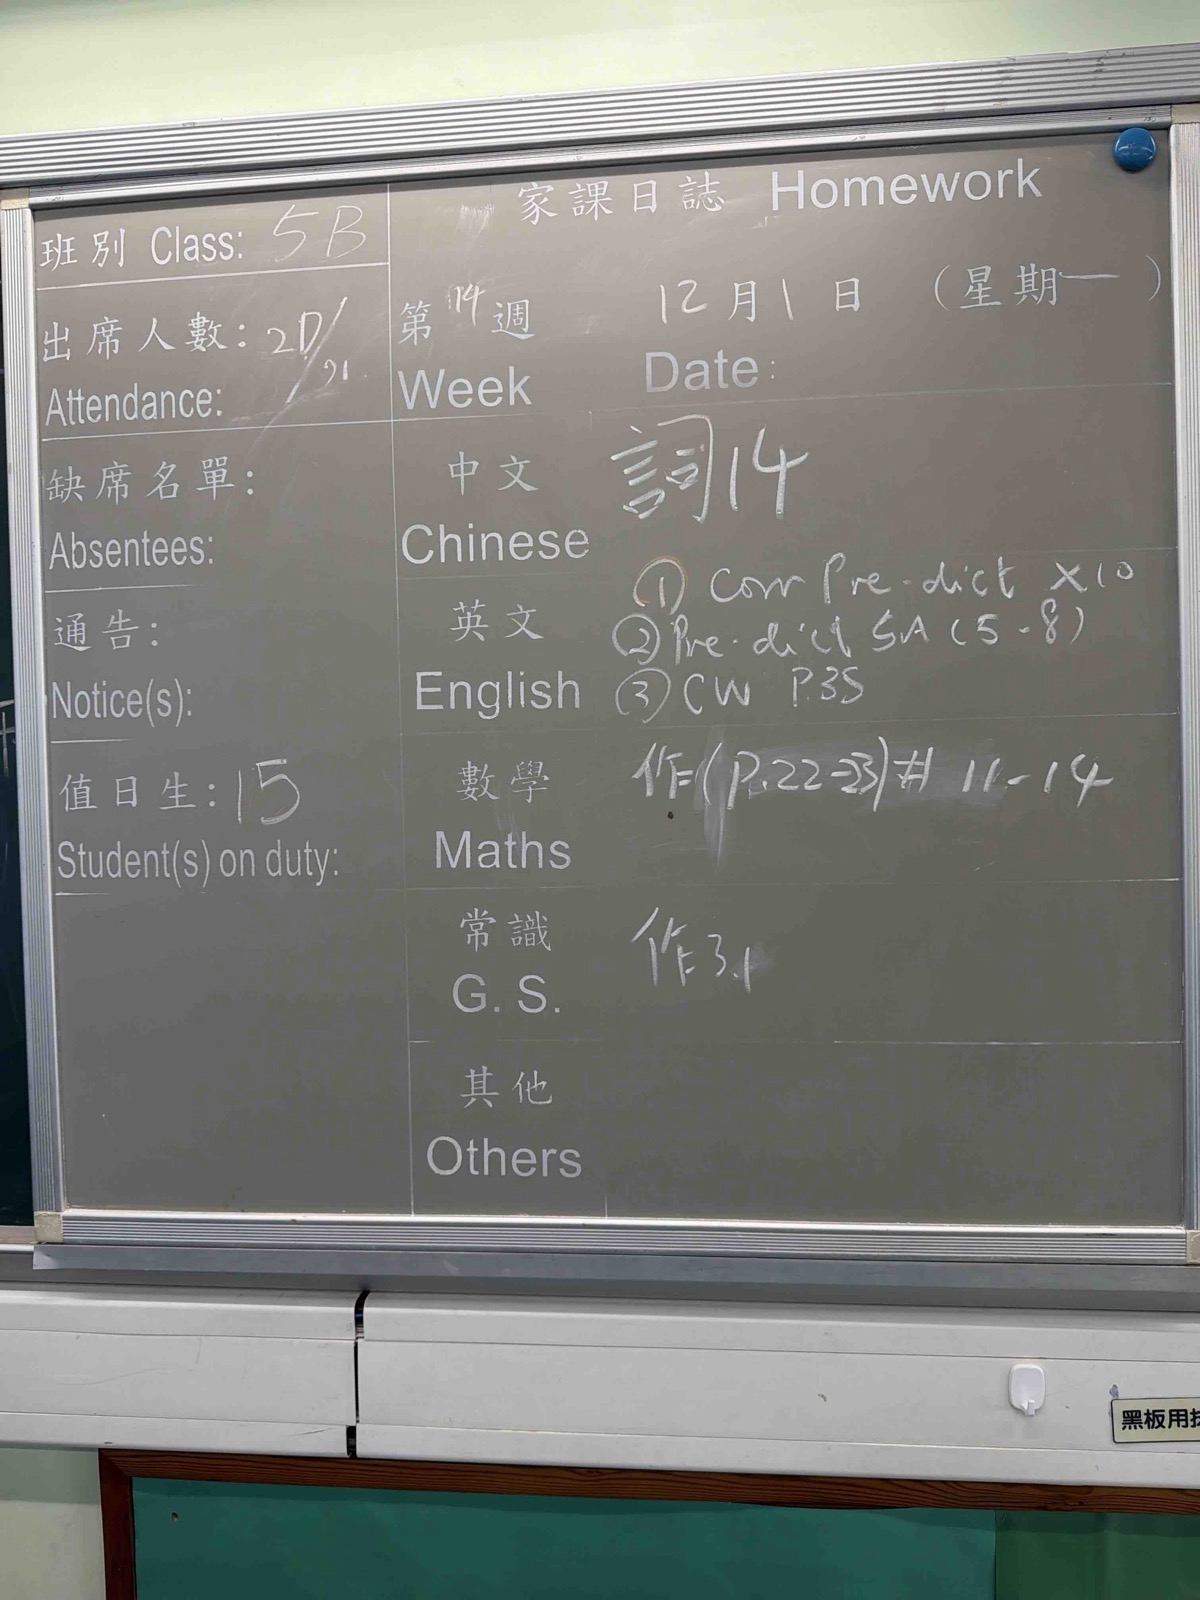 家課日誌 Homework
班別 Class: 5B
出席人數: 20/21
Attendance:
第14週
Week
12月1日 (星期一)
Date:
缺席名單:
Absentees:
中文
Chinese
詞14
通告:
Notice(s):
英文
English
① Corr Pre-dict X10
② Pre-dict 5A (5-8)
③ CW P.35
值日生: 15
Student(s) on duty:
數學
Maths
作(P.22-23)# 11-14
常識
G. S.
作3.1
其他
Others
黑板用